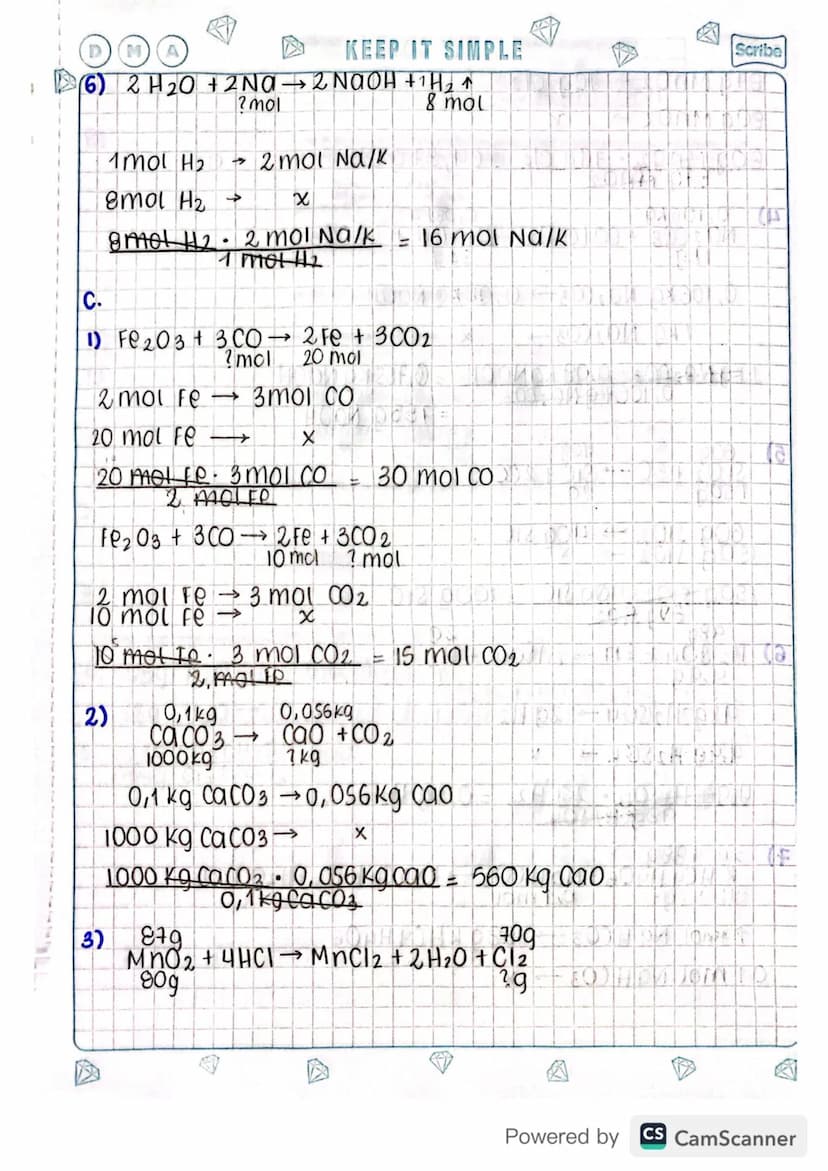 D M A KEEP IT SIMPLE Scribe
6) 2 H2O + 2Na → 2 NaOH + 1H2 ↑
? mol 8 mol
1mol H2 → 2 mol Na/K
8mol H2 → x
8mol H2 · 2 mol Na/K = 16 mol Na/K
1 mol H2
C.
1) Fe2O3 + 3CO → 2Fe + 3CO2
? mol 20 mol
2 mol Fe → 3mol CO
20 mol Fe → x
20 mol Fe · 3mol CO = 30 mol CO
2 mol Fe
Fe2O3 + 3CO → 2Fe + 3CO2
10 mol ? mol
2 mol Fe → 3 mol CO2
10 mol Fe → x
10 5 mol Fe · 3 mol CO2 = 15 mol CO2
2, mol Fe
2) 0,1kg 0,056kg
CaCO3 → CaO + CO2
1000kg ? kg
0,1 kg CaCO3 → 0,056 Kg CaO
1000 Kg CaCO3 → x
1000 Kg CaCO3 · 0,056 Kg CaO = 560 Kg CaO
0,1 kg CaCO3
3) 87g 70g
MnO2 + 4HCl → MnCl2 + 2H2O + Cl2
80g ? g
Powered by CS CamScanner